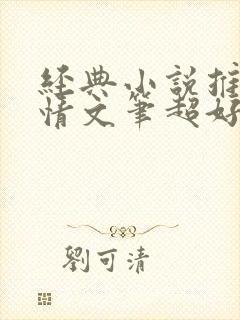 經典小說推
情文筆超好
劉可清